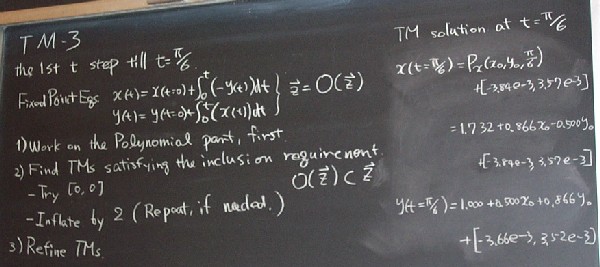 TM-3
the 1st t step till t=π/6.
Fixed Point Eqs x(t)=x(t=0)+∫₀ᵗ(-y(t))dt
y(t)=y(t=0)+∫₀ᵗ(x(t))dt } z⃗=O(z⃗)
1) Work on the Polynomial part, first.
2) Find TMs satisfying the inclusion requirement.
O(z⃗)⊂z⃗
- Try [0,0]
- Inflate by 2 (Repeat, if needed.)
3) Refine TMs.
TM solution at t=π/6
x(t=π/6)=Pₓ(x₀,y₀,π/6)
+[-3.84e-3, 3.57e-3]
=1.732+0.866x₀-0.500y₀
+[-3.84e-3, 3.57e-3]
y(t=π/6)=1.000+0.500x₀+0.866y₀
+[-3.66e-3, 3.52e-3]